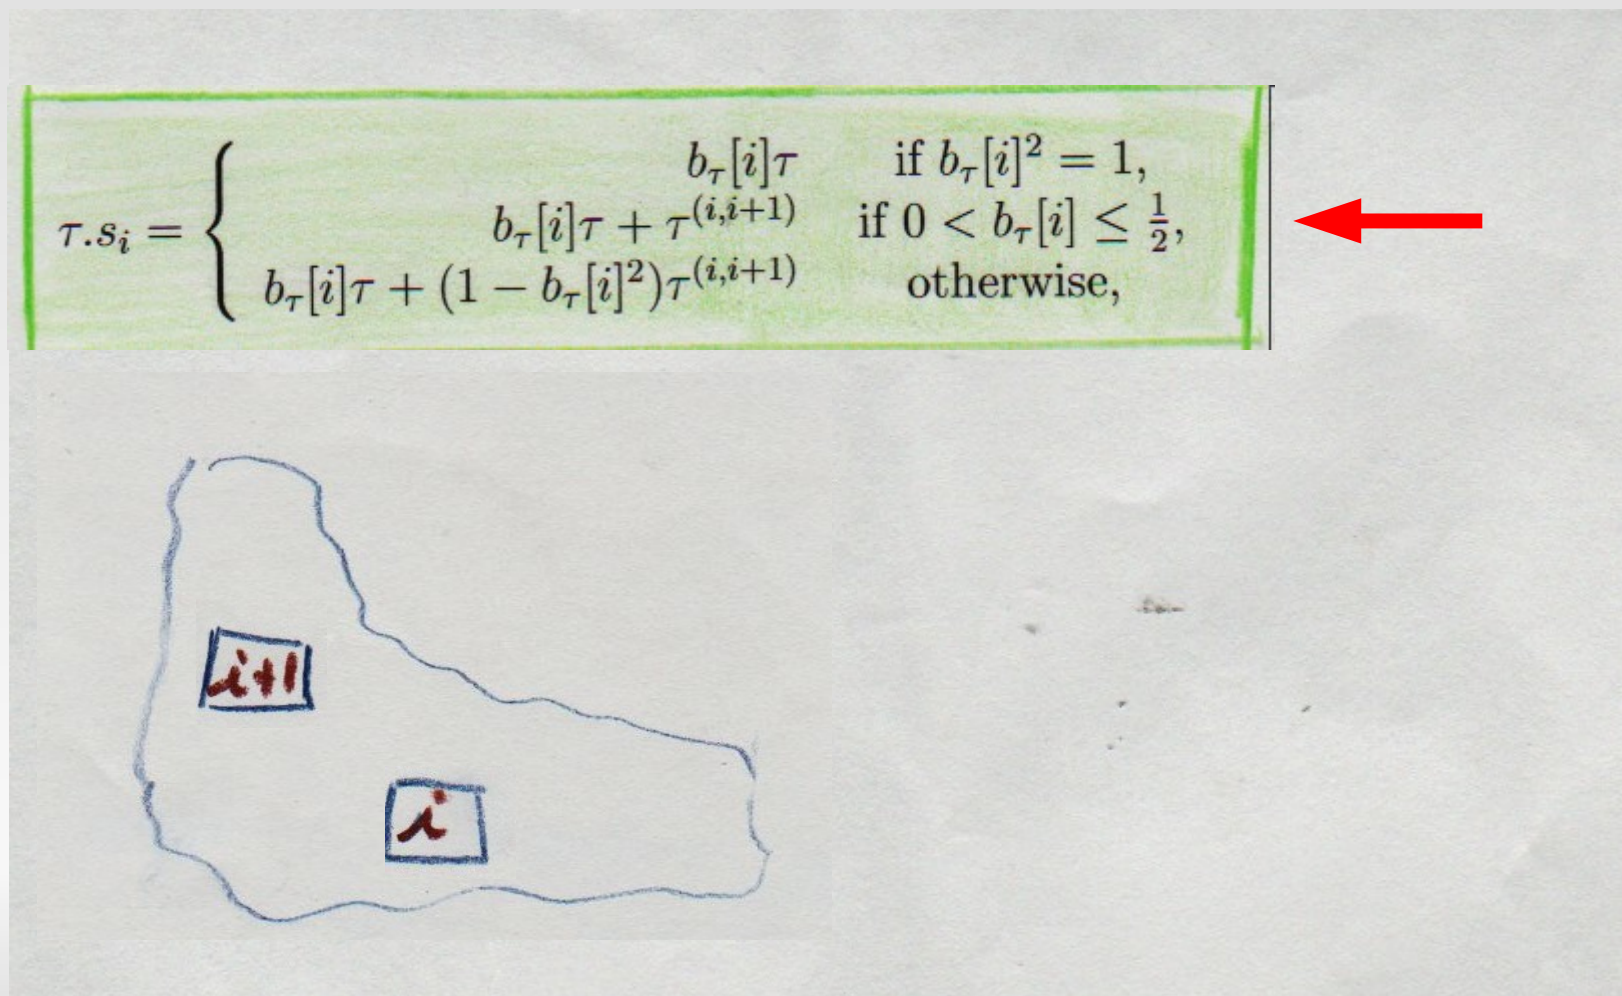 b_τ[i]τ if b_τ[i]² = 1,
τ.s_i = { b_τ[i]τ + τ^(i,i+1) if 0 < b_τ[i] ≤ 1/2,
b_τ[i]τ + (1 − b_τ[i]²)τ^(i,i+1) otherwise,
i+1
i